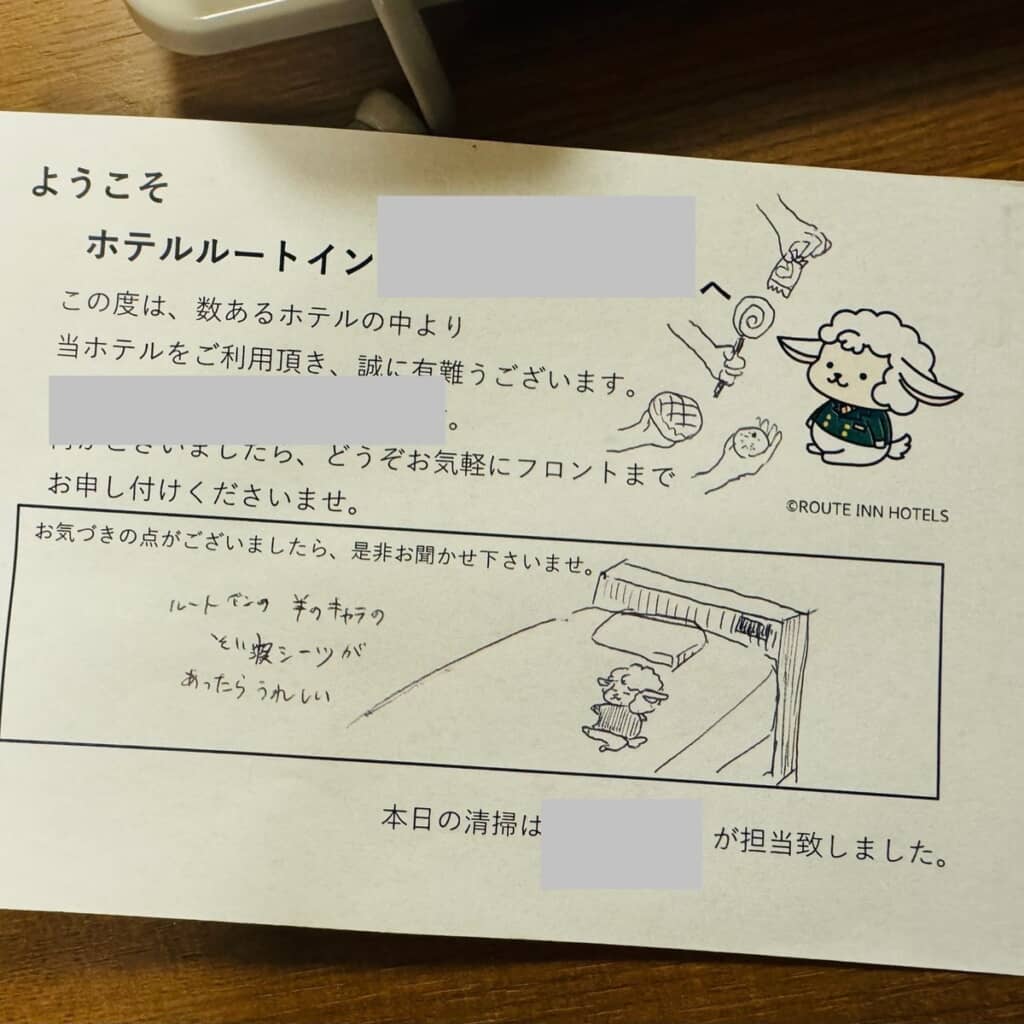 ようこそ
ホテルルートイン
へ
この度は、数あるホテルの中より
当ホテルをご利用頂き、誠に有難うございます。
。
何かございましたら、どうぞお気軽にフロントまで
お申し付けくださいませ。
©ROUTE INN HOTELS
お気づきの点がございましたら、是非お聞かせ下さいませ。
ルートインの 羊のキャラの
そい寝シーツが
あったらうれしい
本日の清掃は
が担当致しました。